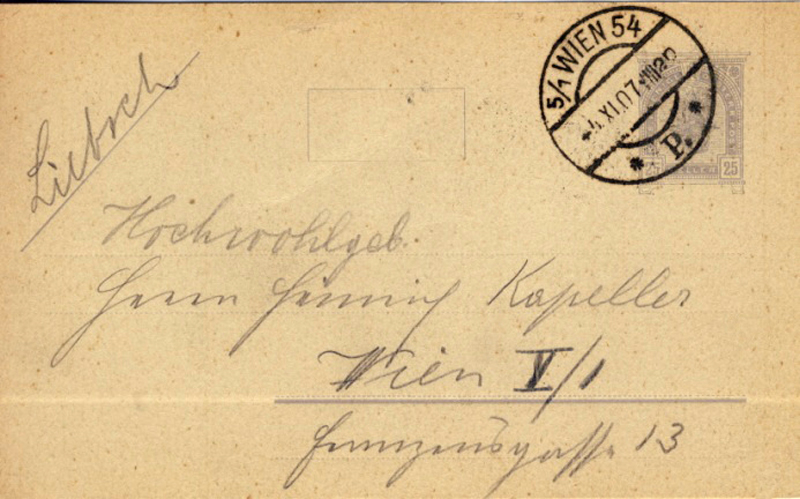 Liebsch
5/1 WIEN 54
4.XI.07
* P. *
25
HELLER
Hochwohlgeb.
Herrn Heinrich Kapeller
Wien V/1
Franzensgasse 13